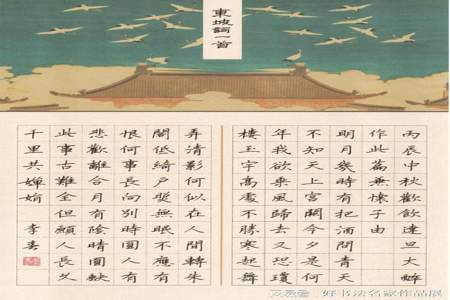 東坡詞一首
丙辰中秋歡飲達旦大醉
作此篇兼懷子由
明月幾時有把酒問青天
不知天上宮闕今夕是何
年我欲乘風歸去又恐瓊
樓玉宇高處不勝寒起舞
弄清影何似在人間轉朱
閣低綺戶照無眠不應有
恨何事長向別時圓人有
悲歡離合月有陰晴圓缺
此事古難全但願人長久
千里共嬋娟 李
好书法名家作品展